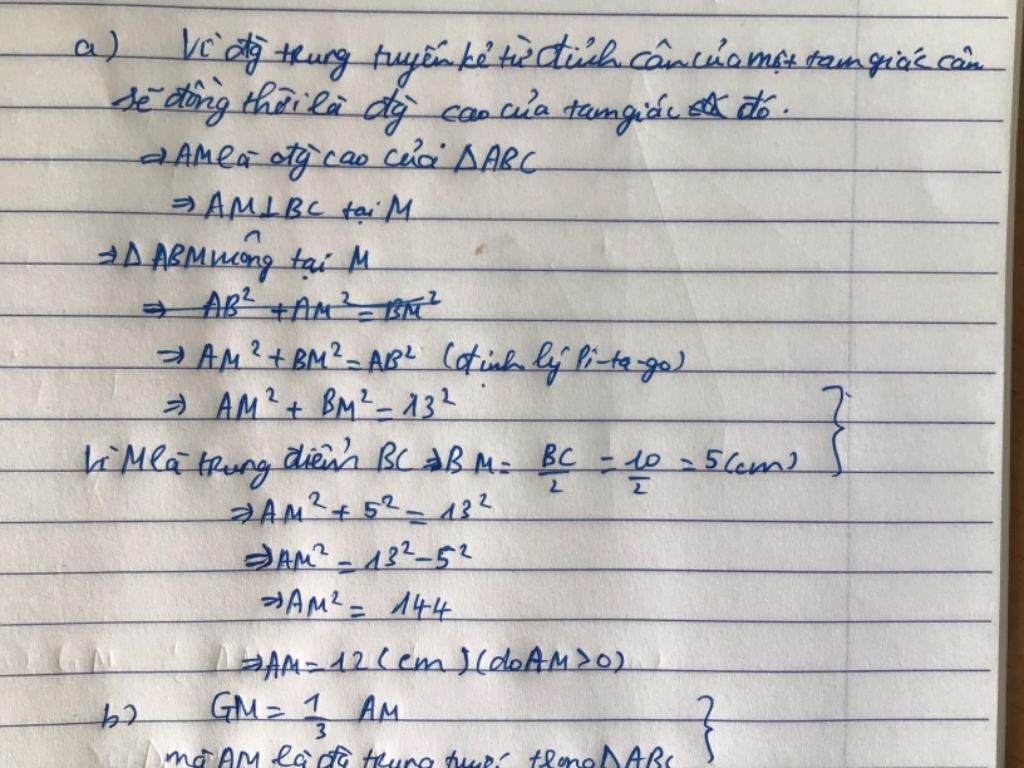 a) Vì đg trung tuyến kẻ từ đỉnh cân của một tam giác cân
sẽ đồng thời là đg cao của tam giác đó.
⇒ AM là đg cao của ΔABC
⇒ AM⊥BC tại M
⇒ Δ ABM vuông tại M
⇒ AB² + AM² = BM²
⇒ AM² + BM² = AB² (định lý Pi-ta-go)
⇒ AM² + BM² = 13²
Vì M là trung điểm BC ⇒ BM = BC/2 = 10/2 = 5(cm)
⇒ AM² + 5² = 13²
⇒ AM² = 13² - 5²
⇒ AM² = 144
⇒ AM = 12 (cm) (do AM > 0)
b) GM = 1/3 AM
mà AM là đg trung tuyến trong ΔABC